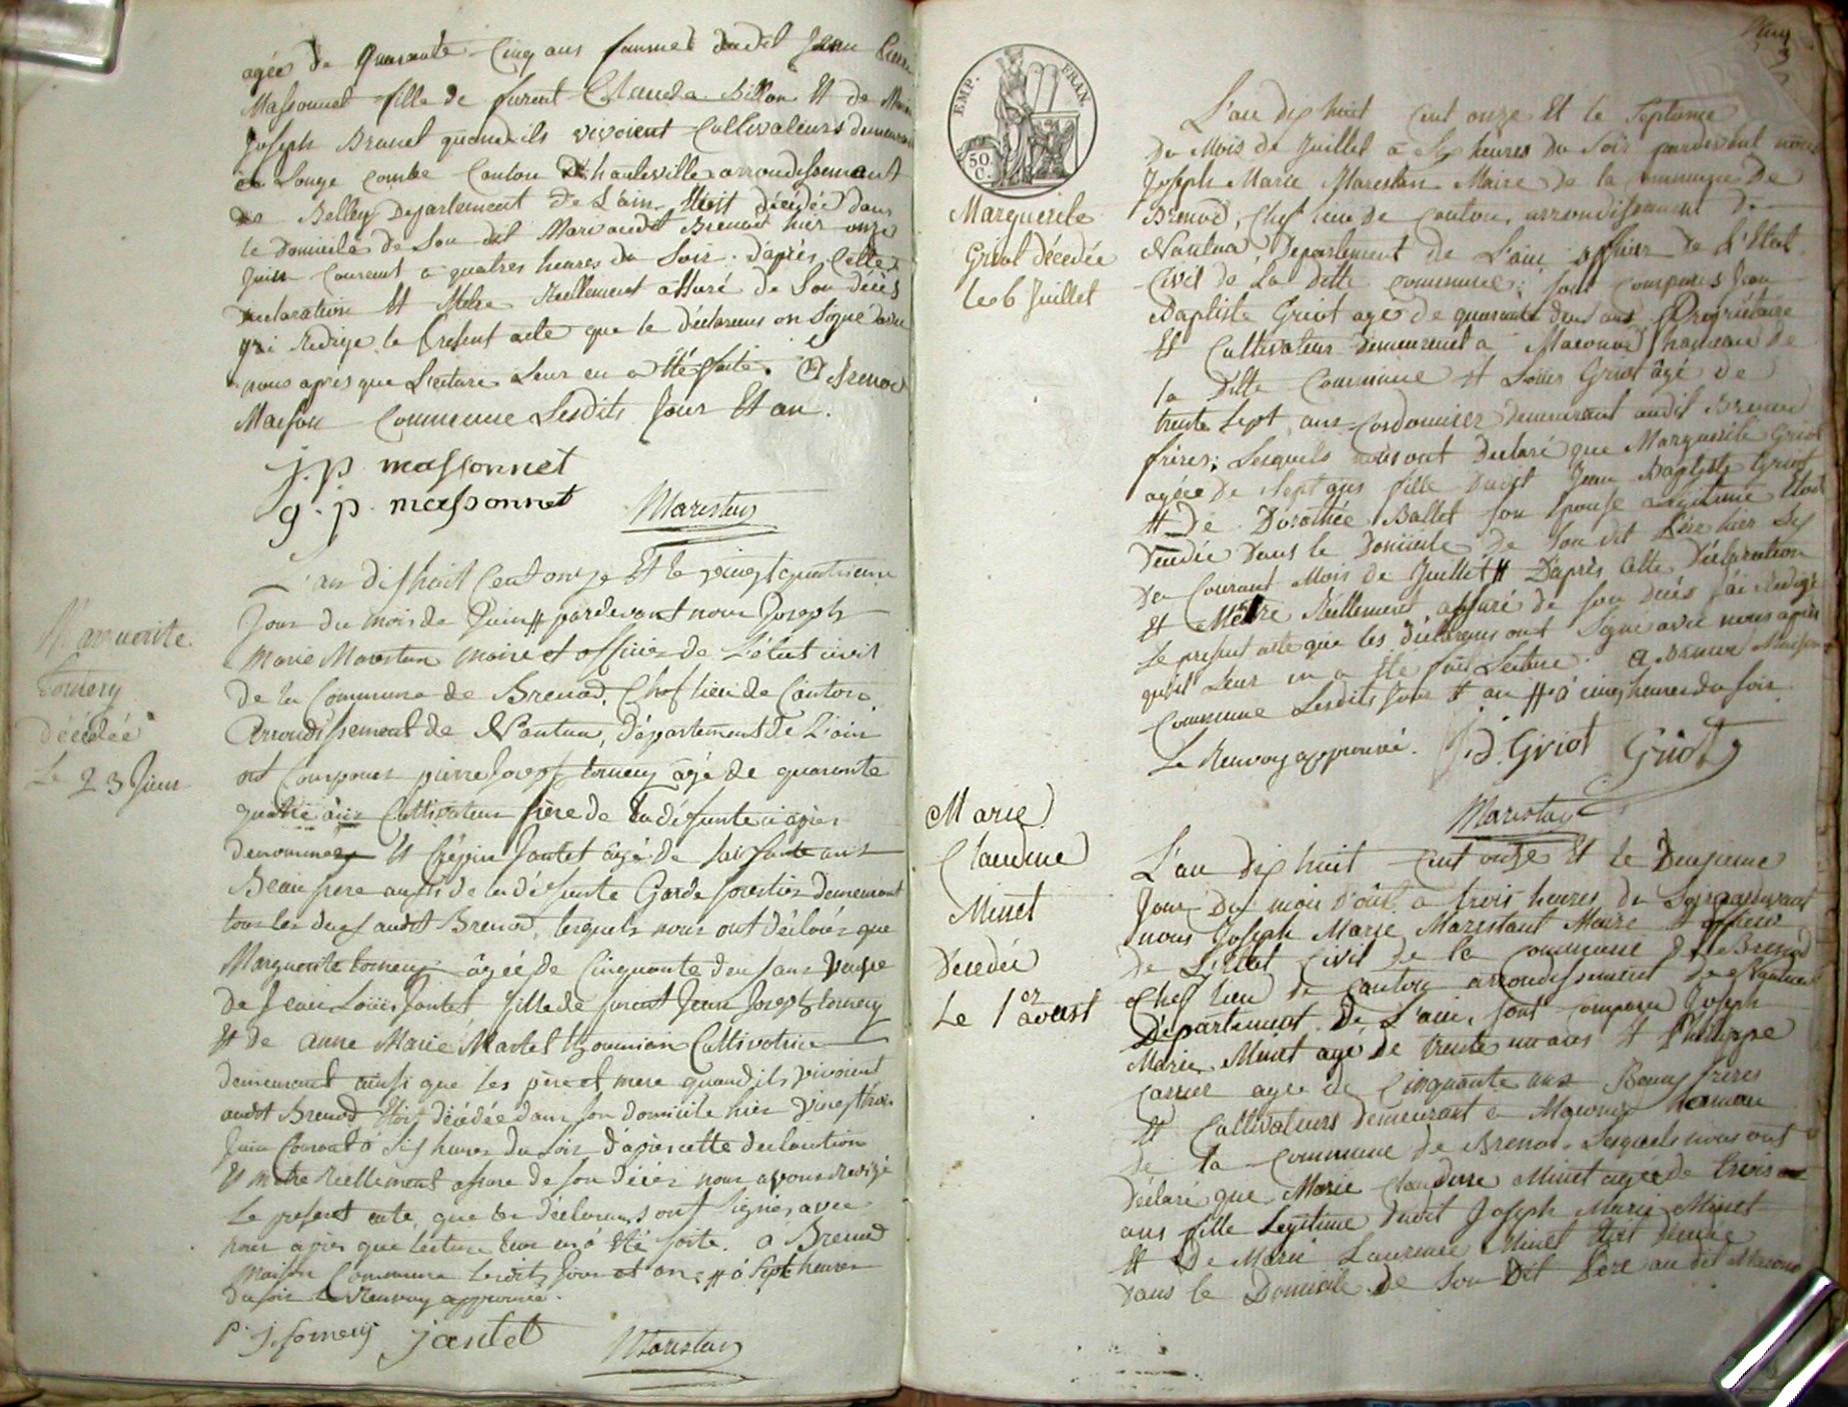 agée de quarante Cinq ans femme dudit Jean
Massonnet fille de furent Claude Billon Et de
Joseph Brunet quand ils vivoient Cultivateurs
a Longe combe Canton d'hauteville arrondissement
de Belley Departement de L'ain Etoit décédée dans
le Domicile de Son dit Mari audit Brenod hier onze
Juin Courant a quatres heures du Soir. d'après Cette
declaration Et M'etre Réellement assuré de Son décès
j'ai Rédigé le Présent acte que le déclarans on Signé
nous après que Lecture Leur en a Eté faite. A Brenod
Maison Commune Lesdits Jour Et an.
j. p. massonnet
g. p. massonnet Marestan
L'an dishuit Cent onze Et le vingt quatrieme
Jour du mois de Juin # pardevant nous Joseph
Marie Marestan maire et officier de L'état civil
de la Commune de Brenod, Chef lieu de Canton,
Arrondissement de Nantua, département de L'ain
ont Comparus pierre Joseph tornery âgé de quarante
quatre ans Cultivateur frère de la défunte ci après
denommée Et Crépin Jantet âgé de soixante ans
Beau frere aussi de la défunte Garde forestier demeurant
tous les deux audit Brenod, lesquels nous ont déclarés que
Marguerite tornery âgée de Cinquante deux ans veuve
de Jean Louis Jantet fille de furent Jean Joseph tornery
Et de anne Marie Martel Cultivatrice
demeurant ainsi que les père et mere quand ils vivoient
audit Brenod Etoit décédée dans son domicile hier vingt trois
Juin Courant à Six heures du Soir d'après cette declaration
Et m'etre réellement assuré de son décès nous avons redigé
le present acte que les déclarans ont signés avec
nous après que lecture leur en à été faite. à Brenod
maison Commune lesdits jour et an # à Sept heures
du soir le Renvoy approuvé.
P. J. torneriy jantet Marestan
Marguerite
tornery
décédée
Le 23 Juin
EMP. FRAN.
50 C.
Marguerite
Griot décedée
Le 6 Juillet
L'an dix huit Cent onze Et le Septieme
du Mois de Juillet a Six heures du Soir pardevant nous
Joseph Marie Marestan Maire de la commune De
Brenod, Chef lieu de Canton, arrondissement de
Nantua, Departement de L'ain officier De L'Etat
Civil de La Ditte commune; Sont Comparus Jean
Baptiste Griot agé de quarante deux ans, Propriétaire
Et Cultivateur demeurent a Maconod hameau de
la Ditte Commune Et Loüis Griot âgé de
trente Sept ans Cordonnier demeurant audit Brenod
frères; Lesquels nous ont Declaré que Marguerite Griot
agée De Sept ans fille Dudit Jean Baptiste Griot
Et De Dorothée Ballet Son Epouse Légitime Etoit
Décédée Dans le Domicile De Son dit Père hier Six
Du Courant Mois de Juillet # D'après Cette Déclaration
Et M'être Réellement assuré de Son Décès j'ai Redigé
le present acte que les déclarans ont Signé avec nous après
qu'il Leur en a Eté fait Lecture. A Brenod Maison
Commune Lesdits jour Et an # à cinq heures du soir
Le Renvoy approuvé. J. B. Griot Griot
Marestan
Marie
Claudine
Minet
Décedée
Le 1er aoust
L'an dix huit Cent onze Et le Deuxieme
Jour Du mois D'oût a trois heures du Soir pardevant
nous Joseph Marie Marestant Maire Et officier
de L'Etat Civil De la Commune de Brenod
Chef lieu de Canton arrondissement de Nantua
Département De L'ain, Sont Comparu Joseph
Marie Minet agé De trente un ans Et Philippe
Carrier agée de Cinquante ans Beaux freres
Et Cultivateurs Demeurant a Maconod hameau
de la Commune de Brenod. Lesquels nous ont
Déclaré que Marie Claudine Minet agée de trois
ans fille Legitime Dudit Joseph Marie Minet
Et De Marie Laurence Minet Etoit Décedée
Dans le Domicile de Son Dit Père au dit Macono